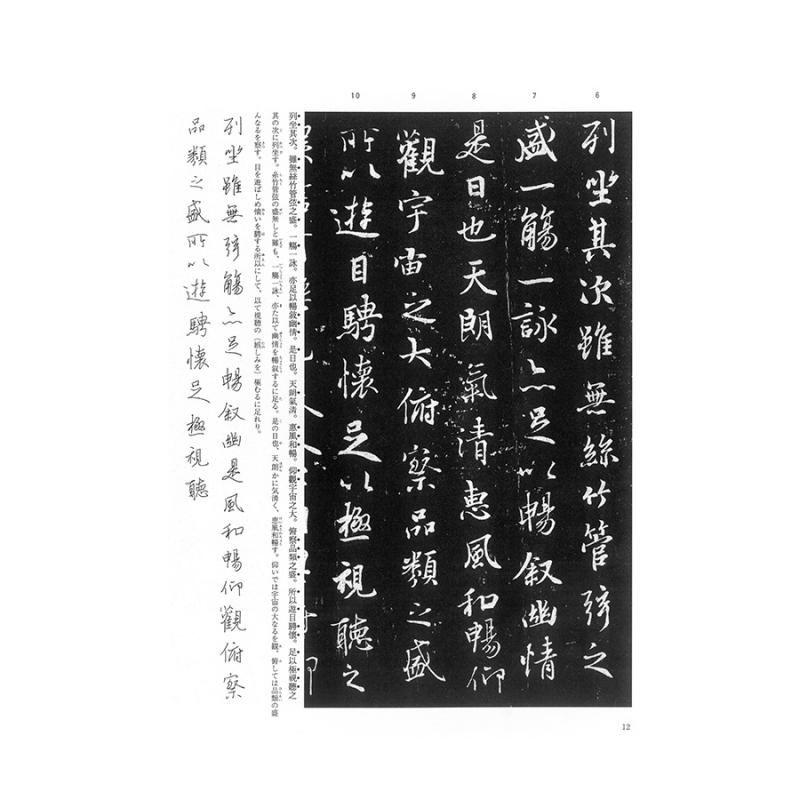 10 9 8 7 6
列坐其次雖無絲竹管弦之
盛一觴一詠亦足以暢叙幽情
是日也天朗氣清惠風和暢仰
觀宇宙之大俯察品類之盛
所以遊目騁懷足以極視聽之
列坐其次。雖無絲竹管弦之盛。一觴一詠。亦足以暢敘幽情。是日也。天朗氣清。惠風和暢。仰觀宇宙之大。俯察品類之盛。所以遊目騁懷。足以極視聽之
其の次に列坐す。糸竹管弦の盛無しと雖も、一觴一詠、亦た以て幽情を暢叙するに足る。是の日也、天朗かに気清く、恵風和暢す。仰いでは宇宙の大なるを観、俯しては品類の盛
んなるを察す。目を遊ばしめ懐いを騁する所以にして、以て視聴の（娯しみを）極むるに足れり。
列坐雖無弦觴亦足暢叙幽是風和暢仰觀俯察
品類之盛所以遊騁懷足極視聽
12